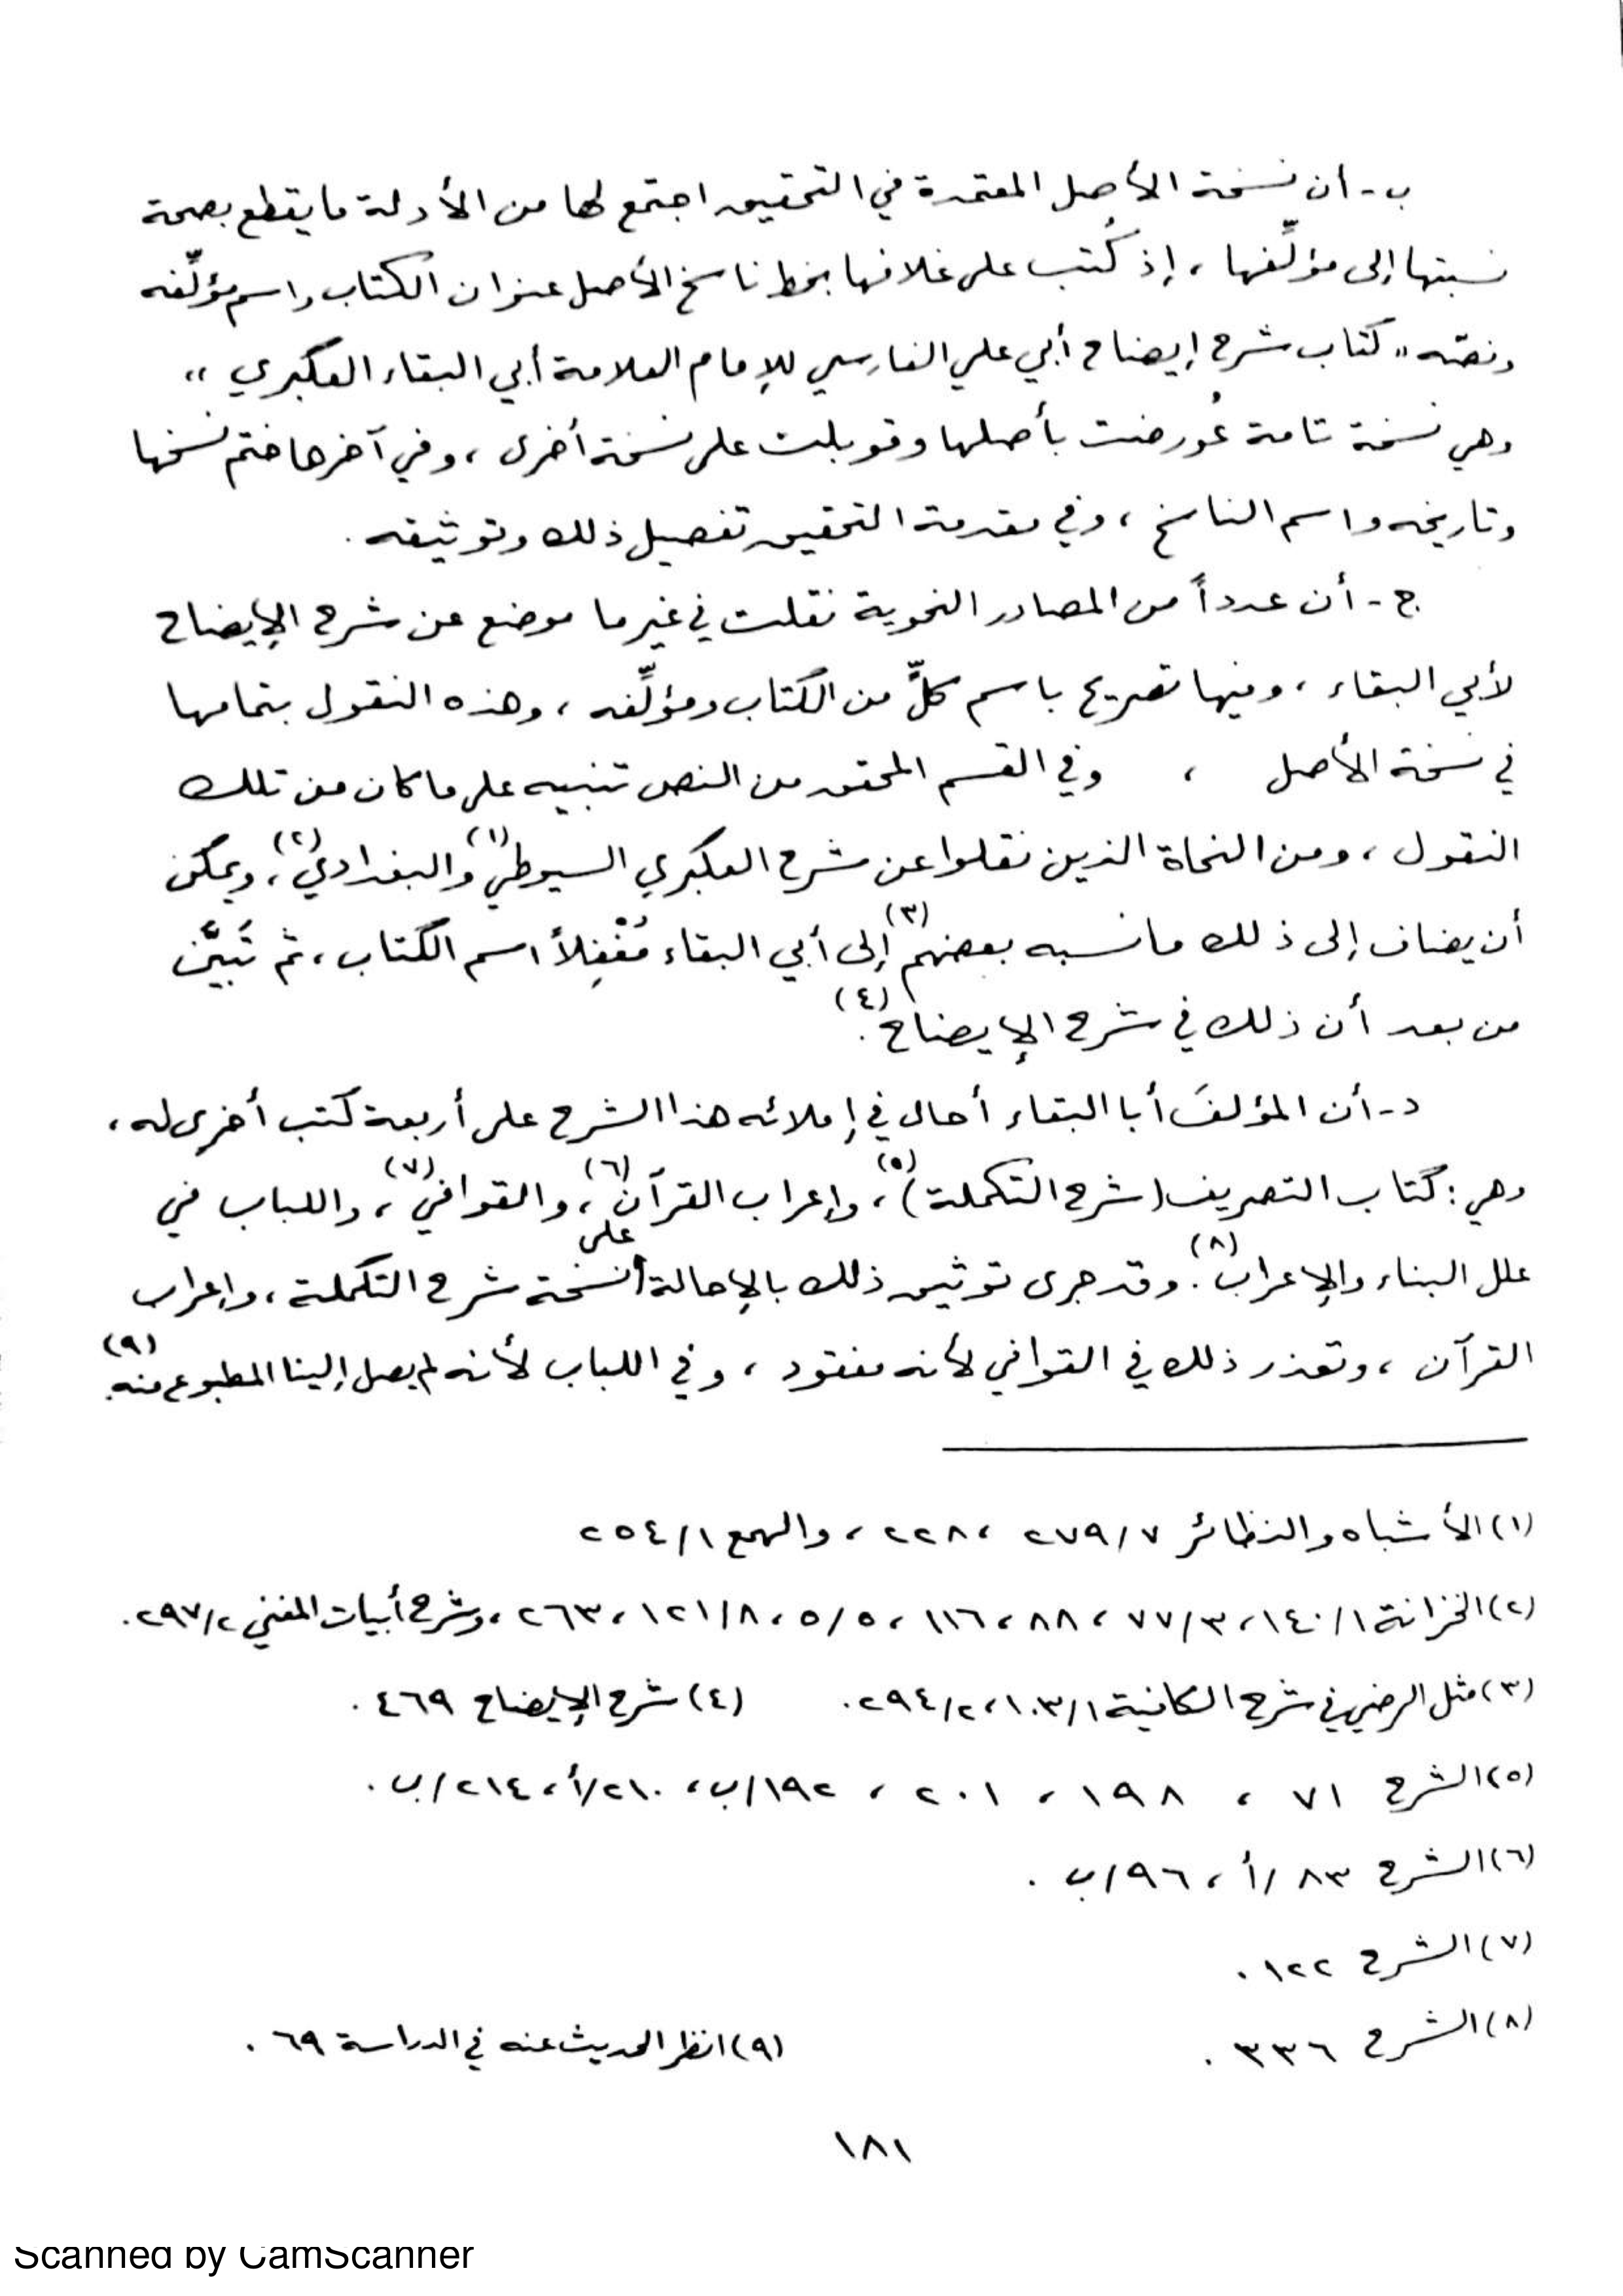 ب - أن نسخة الأصل المعتمدة في التحقيق اجتمع لها من الأدلة ما يقطع بصحة
نسبتها إلى مؤلِّفها ، إذ كُتب على غلافها بخط ناسخ الأصل عنوان الكتاب واسم مؤلِّفه
ونصّه " كتاب شرح إيضاح أبي علي الفارسي للإمام العلامة أبي البقاء العكبري "
وهي نسخة تامة عُورضت بأصلها وقوبلت على نسخة أخرى ، وفي آخرها ختم نسخها
وتاريخه واسم الناسخ ، وفي مقدمة التحقيق تفصيل ذلك وتوثيقه .
ج - أن عدداً من المصادر النحوية نقلت في غير ما موضع عن شرح الإيضاح
لأبي البقاء ، وفيها تصريح باسم كلٍّ من الكتاب ومؤلِّفه ، وهذه النقول بتمامها
في نسخة الأصل ، وفي القسم المحقق من النص تنبيه على ما كان من تلك
النقول ، ومن النحاة الذين نقلوا عن شرح العكبري السيوطي(١) والبغدادي(٢) ، ويمكن
أن يضاف إلى ذلك ما نسبه بعضهم(٣) إلى أبي البقاء مُغْفِلاً اسم الكتاب ، ثم تَبَيَّن
من بعد أن ذلك في شرح الإيضاح(٤) .
د - أن المؤلفَ أبا البقاء أحال في إملائه هذا الشرح على أربعة كتب أخرى له ،
وهي : كتاب التصريف (شرح التكملة)(٥) ، وإعراب القرآن(٦) ، والقوافي(٧) ، واللباب في
علل البناء والإعراب(٨) . وقد جرى توثيق ذلك بالإحالة على نسخة شرح التكملة ، وإعراب
القرآن ، وتعذر ذلك في القوافي لأنه مفقود ، وفي اللباب لأنه لم يصل إلينا المطبوع منه(٩) .
(١) الأشباه والنظائر ٢٧٩/٧ ، ٢٢٨ ، والهمع ٢٥٤/١
(٢) الخزانة ١٤٠/١ ، ٧٧/٣ ، ٨٨ ، ١١٦ ، ٥/٥ ، ١٢١/٨ ، ٢٦٣ ، وشرح أبيات المغني ٢٩٧/٢ .
(٣) مثل الرضي في شرح الكافية ١٠٣/١ ، ٢٩٤/٢ . (٤) شرح الإيضاح ٤٦٩ .
(٥) الشرح ٧١ ، ١٩٨ ، ٢٠١ ، ١٩٢/ب ، ٢١٠/أ ، ٢١٤/ب .
(٦) الشرح ٨٣/أ ، ٩٦/ب .
(٧) الشرح ١٢٢ .
(٨) الشرح ٣٣٦ . (٩) انظر الحديث عنه في الدراسة ٦٩ .
١٨١
Scanned by CamScanner